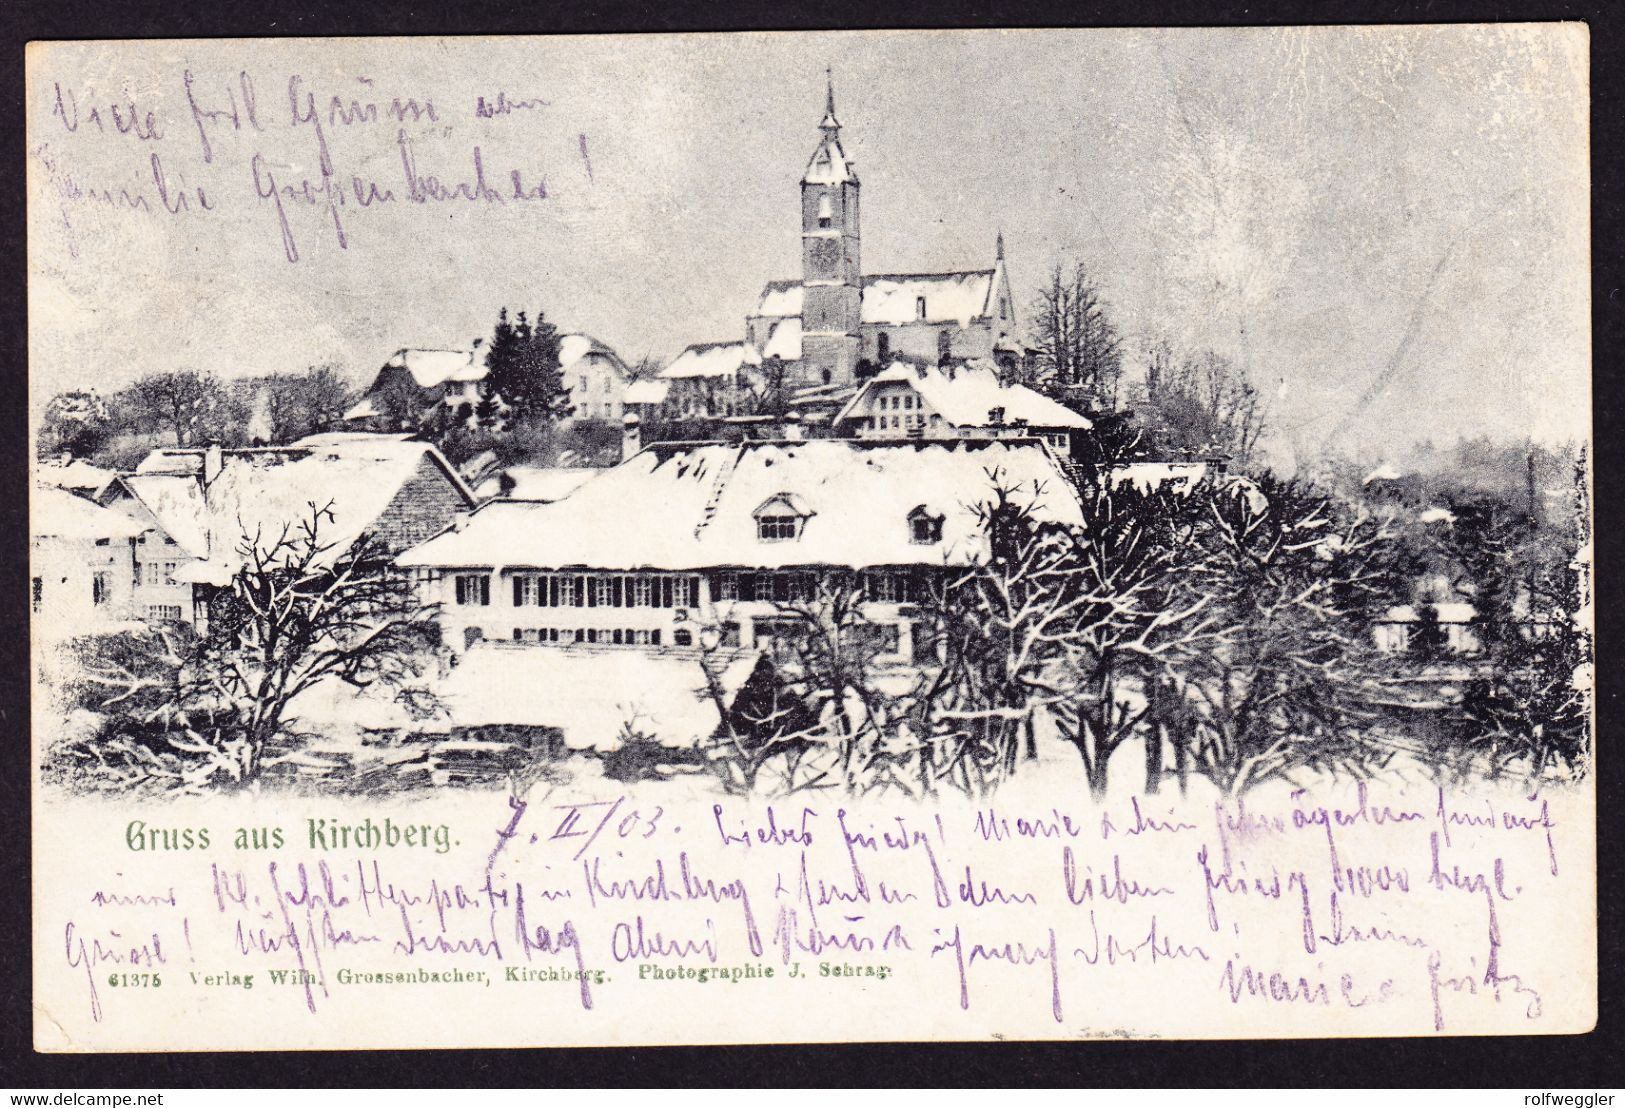 Viele Grüsse
Familie Großenbacher!
Gruss aus Kirchberg.
7. II/03. Liebes Friedy! Marie & dein Schwägerlein sind auf
einer kl. Schlittenpartie in Kirchberg & senden dem lieben Friedy 1000 herzl.
Grüsse! Nächsten Dienstag Abend ich nach dorten! Deine
Marie & Fritz
61375 Verlag Wilh. Grossenbacher, Kirchberg. Photographie J. Schrag.
rolfweggler